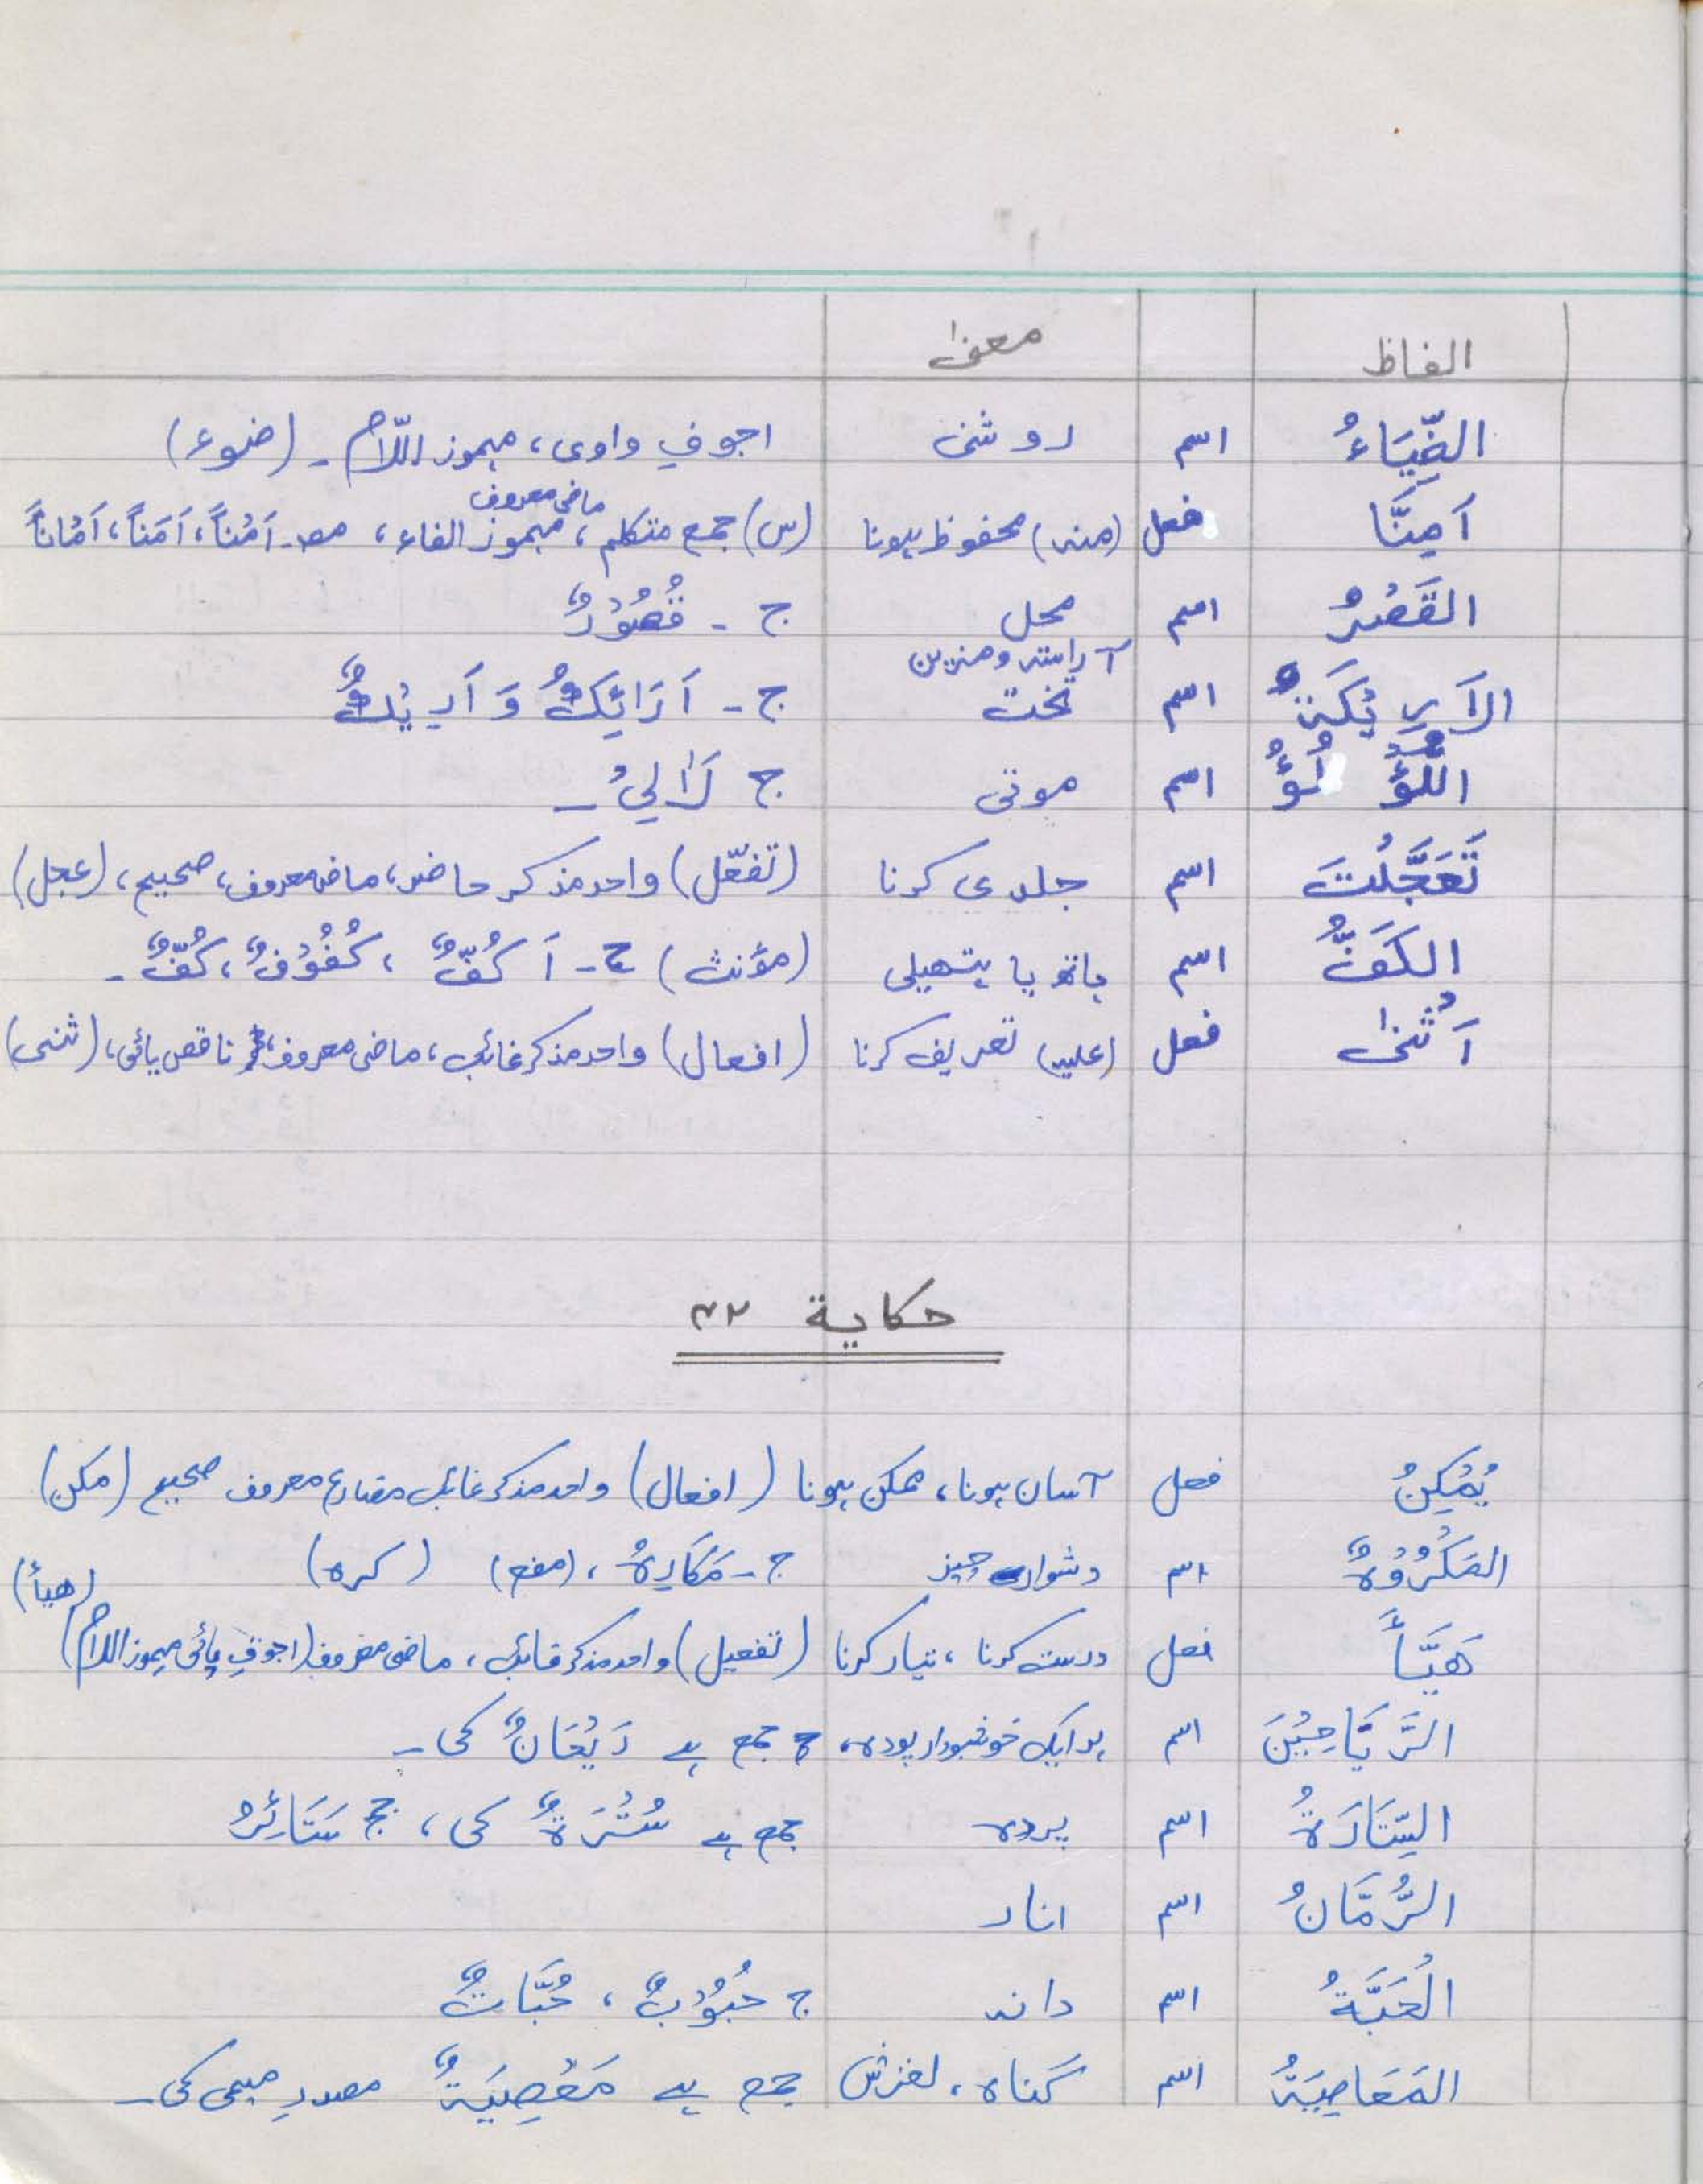 الفاظ معنیٰ
الضِّيَاءُ اسم روشنی اجوفِ واوی، مہموز اللّام۔ (ضوء)
ماضی معروف
آمِنَّا فعل (منہ) محفوظ ہونا (س) جمع متکلم، مہموز الفاء، مصد۔ اَمْناً، اَمَناً، اَمَاناً
القَصْرُ اسم محل ج ۔ قُصُوْرٌ
آراستہ و مزین
الاَرِيْكَةُ اسم تخت ج۔ اَرَائِكُ وَ اَرِيْكٌ
اللُّؤْلُؤُ اسم موتی ج لَآلِيُ ۔
تَعَجَّلْتَ اسم جلدی کرنا (تفعّل) واحد مذکر حاضر، ماضی معروف، صحیح، (عجل)
الكَفُّ اسم ہاتھ یا ہتھیلی (مؤنث) ج۔ اَكُفٌّ ، كُفُوْفٌ، كُفٌّ ۔
اَثْنیٰ فعل (علیہ) تعریف کرنا (افعال) واحد مذکر غائب، ماضی معروف، ناقص یائی، (ثنی)
حكاية ٣٢
يُمْكِنُ فعل آسان ہونا، ممکن ہونا (افعال) واحد مذکر غائب مضارع معروف صحیح (مکن)
المَكْرُوْهُ اسم دشوار چیز ج۔ مَكَارِهُ ، (مفع) (کرہ)
(هيأ)
هَيَّأَ فعل درست کرنا ، تیار کرنا (تفعیل) واحد مذکر غائب، ماضی معروف (اجوفِ یائی مہموز اللام)
الرَّيَاحِيْنَ اسم ہر ایک خوشبودار پودہ، ج جمع ہے رَيْحَانٌ کی ۔
السِّتَارَةُ اسم پردہ جمع ہے سُتْرَةٌ کی ، جج سَتَائِرُ
الرُّمَّانُ اسم انار
الْحَبَّةُ اسم دانہ ج حُبُوْبٌ ، حَبَّاتٌ
المَعَاصِيَةُ اسم گناہ، لغزش جمع ہے مَعْصِيَةٌ مصدرِ میمی کی۔